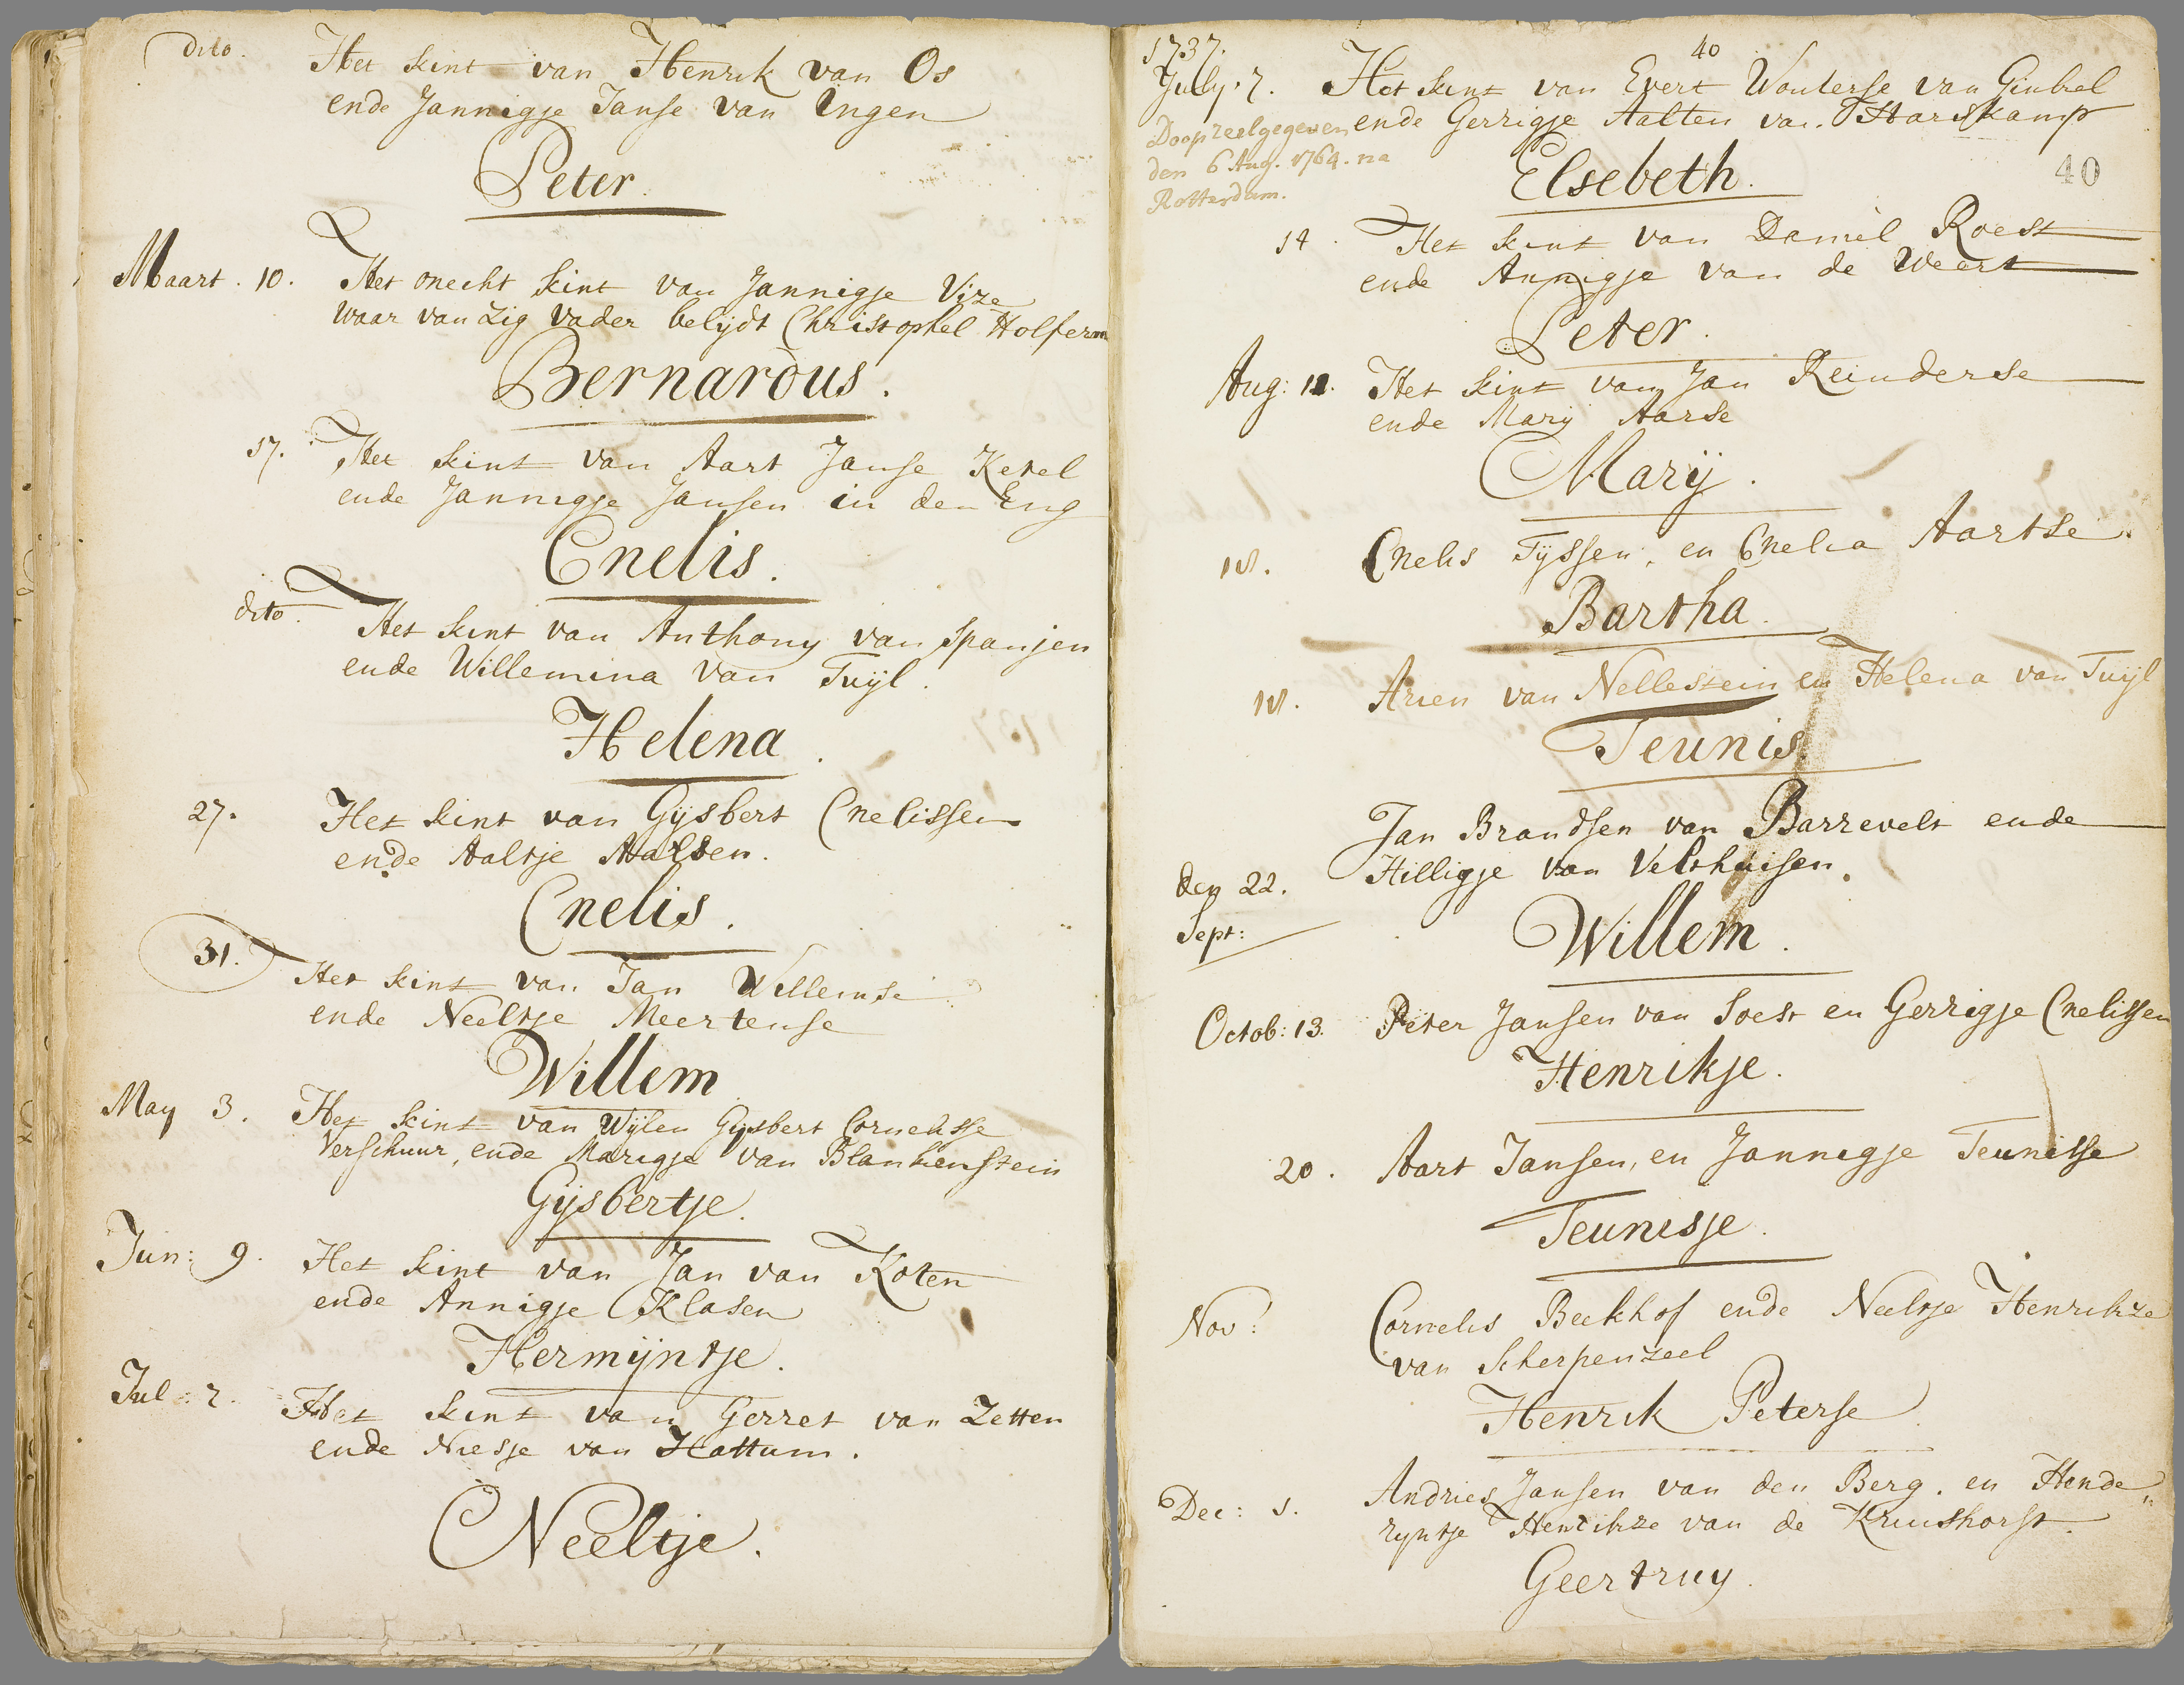 dito. Het kint van Henrik van Os
ende Jannigje Janse van Ingen
Peter.
Maart. 10. Het onecht kint van Jannigje Vize
waar van zig vader belijdt Christophel Holferm
Bernardus.
17. Het kint van Aart Janse Ketel
ende Jannigje Jansen in den Eng
Cnelis.
dito. Het kint van Anthony van Spanjen
ende Willemina van Tuijl.
Helena.
27. Het kint van Gijsbert Cnelissen
ende Aaltje Aalten.
Cnelis.
31. Het kint van Jan Willemse
ende Neeltje Meertense
Willem
May 3. Het kint van Wijlen Gijsbert Cornelisse
Verschuur, ende Marigje van Blankenstein
Gijsbertje.
Jun: 9. Het kint van Jan van Koten
ende Annigje Klasen
Hermijntje.
Jul: 7. Het kint van Gerret van Zetten
ende Niesje van Hattum.
Neeltje.
1737. 40
July. 7. Het kint van Evert Wouterse van Ginkel
ende Gerrigje Aalten van Harskamp
Doopzeel gegeven
den 6 Aug. 1764. na
Rotterdam.
Elsebeth.
40
14. Het kint van Daniel Roest
ende Annigje van de Weert
Peter.
Aug: 11. Het kint van Jan Reinderse
ende Marij Aarse
Marij.
18. Cnelis Tijssen, en Cnelia Aartse.
Bartha.
18. Arien van Nellestein en Helena van Tuijl
Teunis.
Jan Brandsen van Barrevelt ende
den 22. Hilligje van Velthuisen.
Sept:
Willem.
Octob: 13. Peter Jansen van Soest en Gerrigje Cnelissen
Henrikje.
20. Aart Jansen, en Jannigje Teunisse
Teunisje.
Nov: Cornelis Beekhof ende Neeltje Henrikze
van Scherpenzeel
Henrik Peterse
Dec: 1. Andries Jansen van den Berg. en Hende„
ryntje Henrikze van de Kruishorst.
Geertruy.